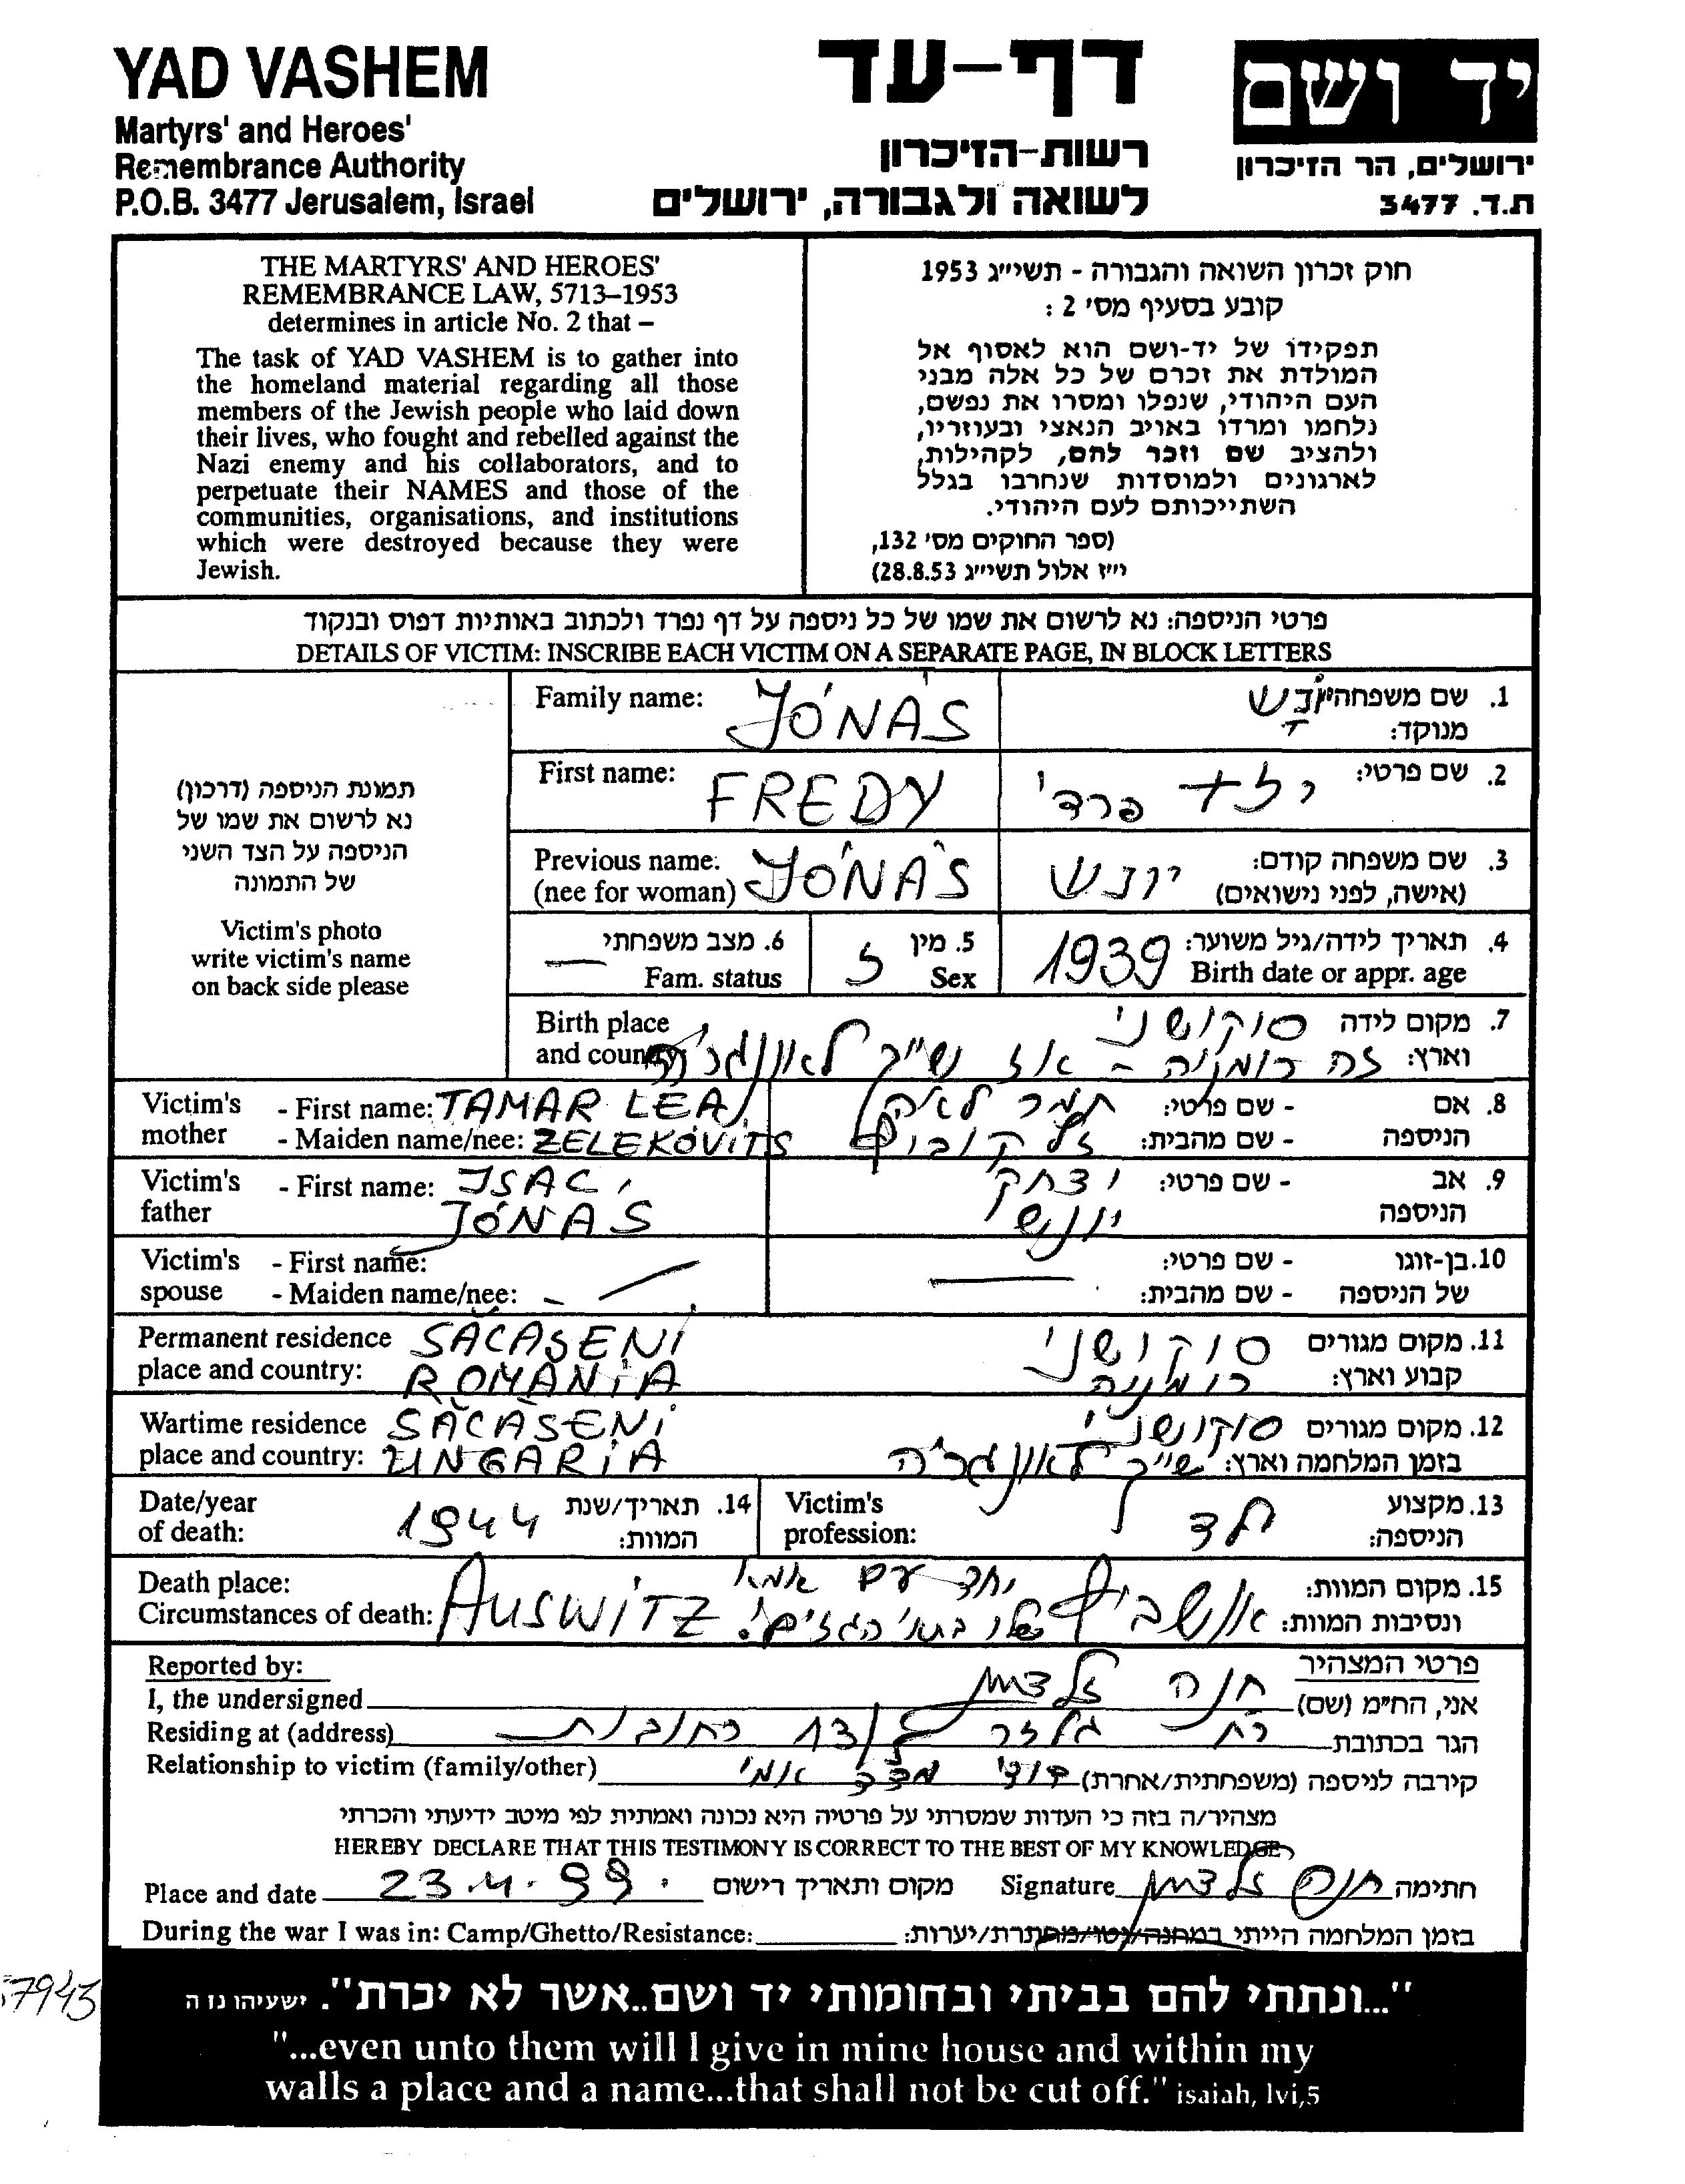 YAD VASHEM
Martyrs' and Heroes'
Remembrance Authority
P.O.B. 3477 Jerusalem, Israel
דף-עד
רשות-הזיכרון
לשואה ולגבורה, ירושלים
יד ושם
ירושלים, הר הזיכרון
ת.ד. 3477
THE MARTYRS' AND HEROES'
REMEMBRANCE LAW, 5713–1953
determines in article No. 2 that –
The task of YAD VASHEM is to gather into
the homeland material regarding all those
members of the Jewish people who laid down
their lives, who fought and rebelled against the
Nazi enemy and his collaborators, and to
perpetuate their NAMES and those of the
communities, organisations, and institutions
which were destroyed because they were
Jewish.
חוק זכרון השואה והגבורה - תשי״ג 1953
קובע בסעיף מס' 2 :
תפקידו של יד-ושם הוא לאסוף אל
המולדת את זכרם של כל אלה מבני
העם היהודי, שנפלו ומסרו את נפשם,
נלחמו ומרדו באויב הנאצי ובעוזריו,
ולהציב שם וזכר להם, לקהילות,
לארגונים ולמוסדות שנחרבו בגלל
השתייכותם לעם היהודי.
(ספר החוקים מס' 132,
י״ז אלול תשי״ג 28.8.53)
פרטי הניספה: נא לרשום את שמו של כל ניספה על דף נפרד ולכתוב באותיות דפוס ובנקוד
DETAILS OF VICTIM: INSCRIBE EACH VICTIM ON A SEPARATE PAGE, IN BLOCK LETTERS
תמונת הניספה (דרכון)
נא לרשום את שמו של
הניספה על הצד השני
של התמונה
Victim's photo
write victim's name
on back side please
Family name: JÓNÁS
1. שם משפחה
מנוקד:
First name: FREDY
2. שם פרטי: ילד פרדי
Previous name: JÓNÁS
(nee for woman)
3. שם משפחה קודם: יונש
(אישה, לפני נישואים)
6. מצב משפחתי —
Fam. status
5. מין ז
Sex
4. תאריך לידה/גיל משוער: 1939
Birth date or appr. age
Birth place
and country
7. מקום לידה סוקושני
וארץ: זה רומניה - אז שייך לאונגריה
Victim's mother
- First name: TAMAR LEA
- Maiden name/nee: ZELEKOVITS
8. אם הניספה
- שם פרטי: תמר לאה
- שם מהבית: זלקוביץ
Victim's father
- First name: ISAC
JÓNÁS
9. אב הניספה
- שם פרטי: יצחק
יונש
Victim's spouse
- First name:
- Maiden name/nee: —
10. בן-זוגו של הניספה
- שם פרטי:
- שם מהבית:
Permanent residence SĂCĂSENI
place and country: ROMÂNIA
11. מקום מגורים סוקושני
קבוע וארץ: רומניה
Wartime residence SĂCĂSENI
place and country: UNGARIA
12. מקום מגורים סוקושני
בזמן המלחמה וארץ: שייך לאונגריה
Date/year
of death: 1944
14. תאריך/שנת
המוות:
Victim's
profession:
13. מקצוע
הניספה: ילד
Death place:
Circumstances of death: AUSWITZ
15. מקום המוות: אושביץ יחד עם אמא
ונסיבות המוות: שלו בתאי הגזים!
Reported by:
פרטי המצהיר
I, the undersigned
אני, הח״מ (שם) חנה זלצמן
Residing at (address)
הגר בכתובת רח' גלזר 13/ רחובות
Relationship to victim (family/other)
קירבה לניספה (משפחתית/אחרת) מצד אמי
מצהיר/ה בזה כי העדות שמסרתי על פרטיה היא נכונה ואמתית לפי מיטב ידיעתי והכרתי
HEREBY DECLARE THAT THIS TESTIMONY IS CORRECT TO THE BEST OF MY KNOWLEDGE
Place and date 23.4.99. מקום ותאריך רישום
Signature חנה זלצמן חתימה
During the war I was in: Camp/Ghetto/Resistance:
בזמן המלחמה הייתי במחנה/גטו/מחתרת/יערות:
7943
"...ונתתי להם בביתי ובחומותי יד ושם..אשר לא יכרת". ישעיהו נו ה
"...even unto them will I give in mine house and within my
walls a place and a name...that shall not be cut off." isaiah, lvi,5